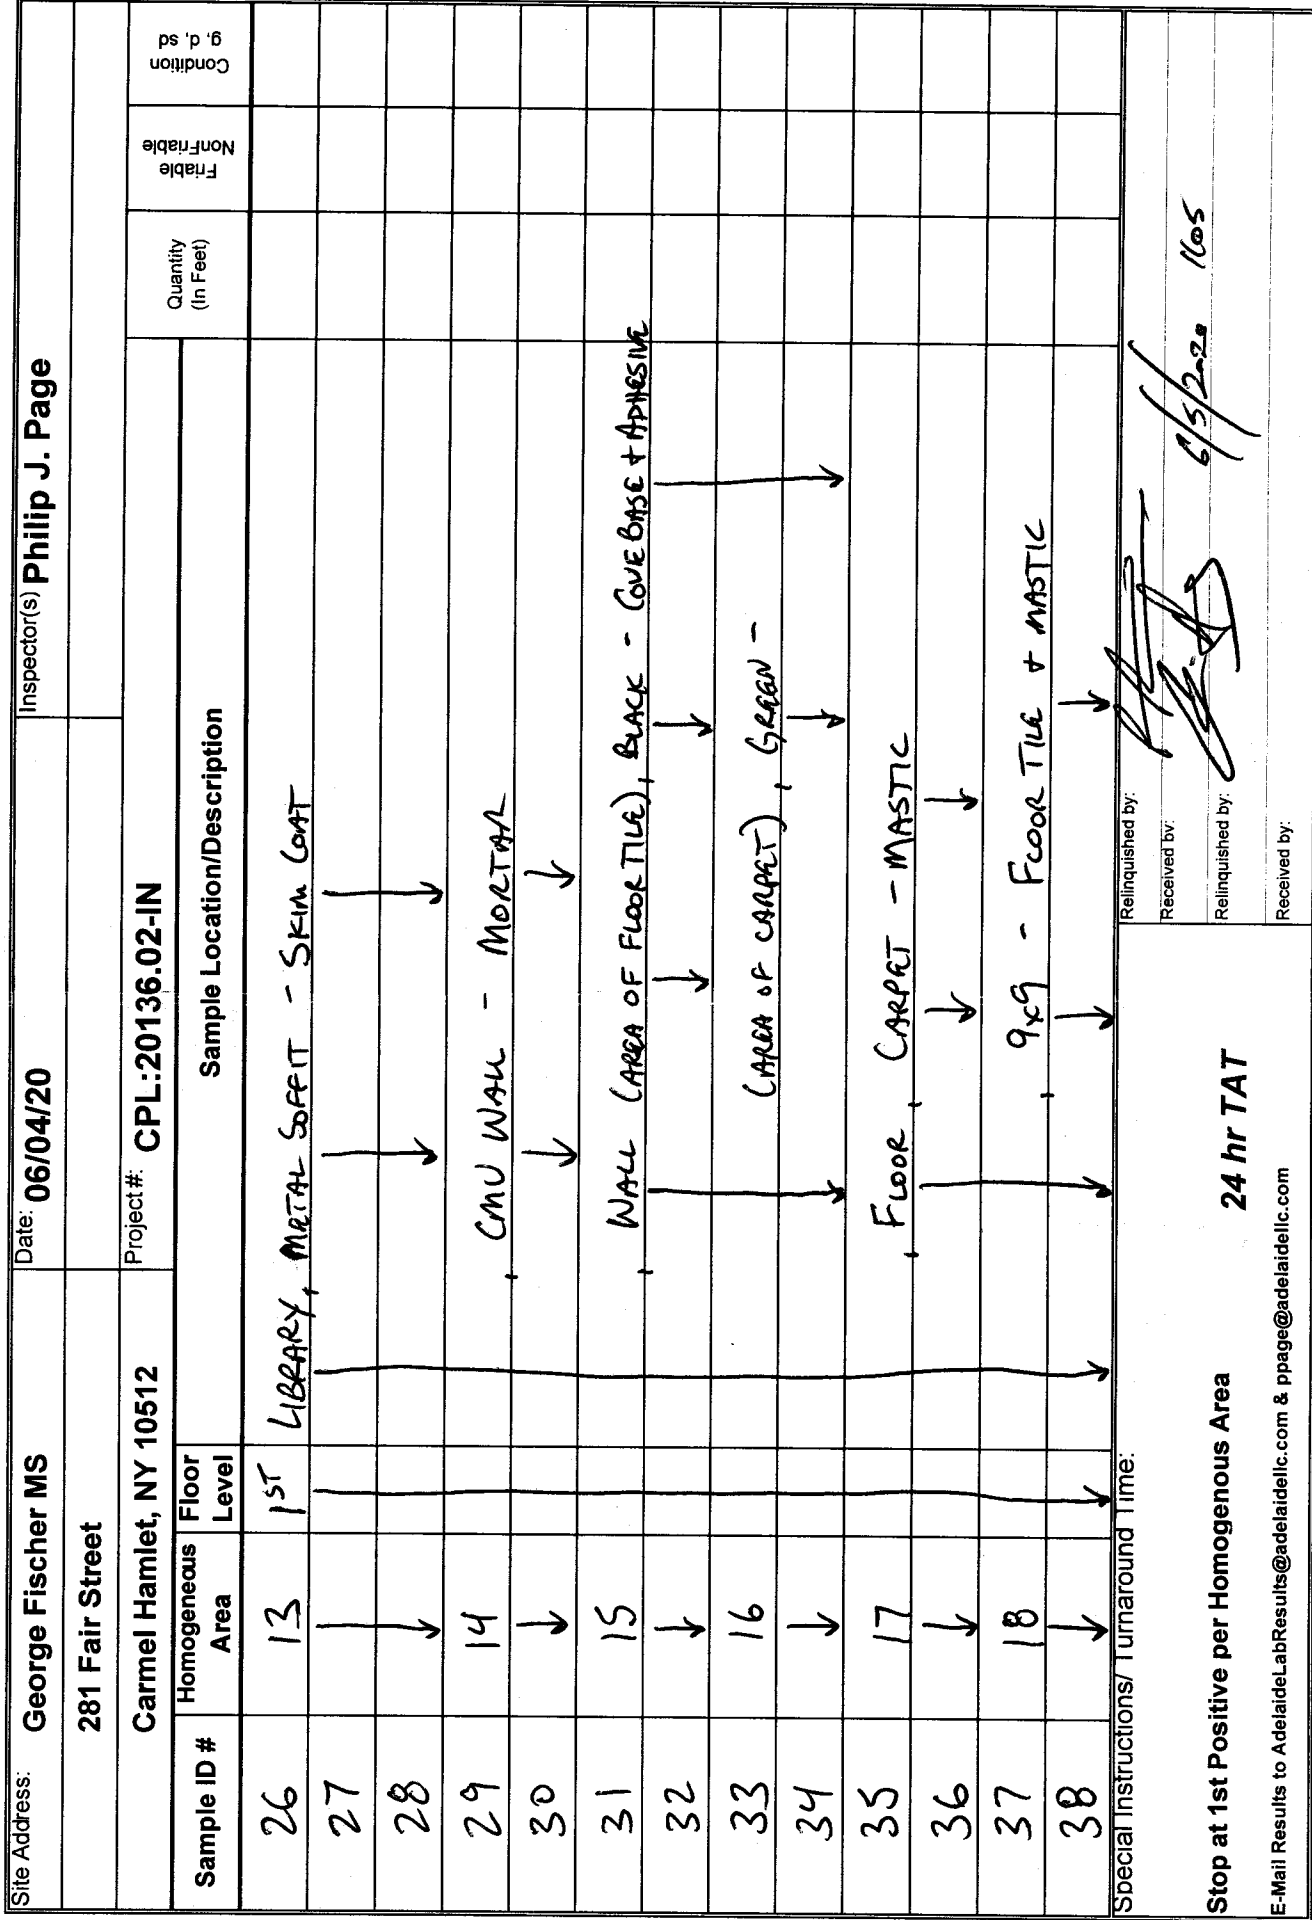 Site Address: George Fischer MS Date: 06/04/20 Inspector(s) Philip J. Page
281 Fair Street
Carmel Hamlet, NY 10512 Project #: CPL:20136.02-IN
Sample ID # Homogeneous Area Floor Level Sample Location/Description Quantity (In Feet) Friable NonFriable Condition g, d, sd
26 13 1ST LIBRARY, METAL SOFFIT - SKIM COAT
27
28
29 14 CMU WALL - MORTAR
30
31 15 WALL (AREA OF FLOOR TILE), BLACK - COVE BASE + ADHESIVE
32
33 16 (AREA OF CARPET), GREEN -
34
35 17 FLOOR, CARPET - MASTIC
36
37 18 9x9 - FLOOR TILE + MASTIC
38
Special Instructions/ Turnaround Time:
Stop at 1st Positive per Homogenous Area 24 hr TAT
E-Mail Results to AdelaideLabResults@adelaidellc.com & ppage@adelaidellc.com
Relinquished by:
Received by: 6/5/2020 1605
Relinquished by:
Received by: